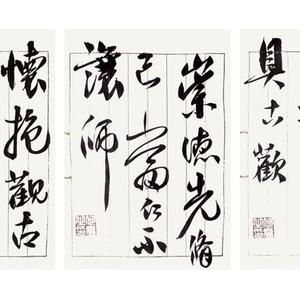 具古歡
崇德先脩
己當仁不
讓師
懷抱觀古